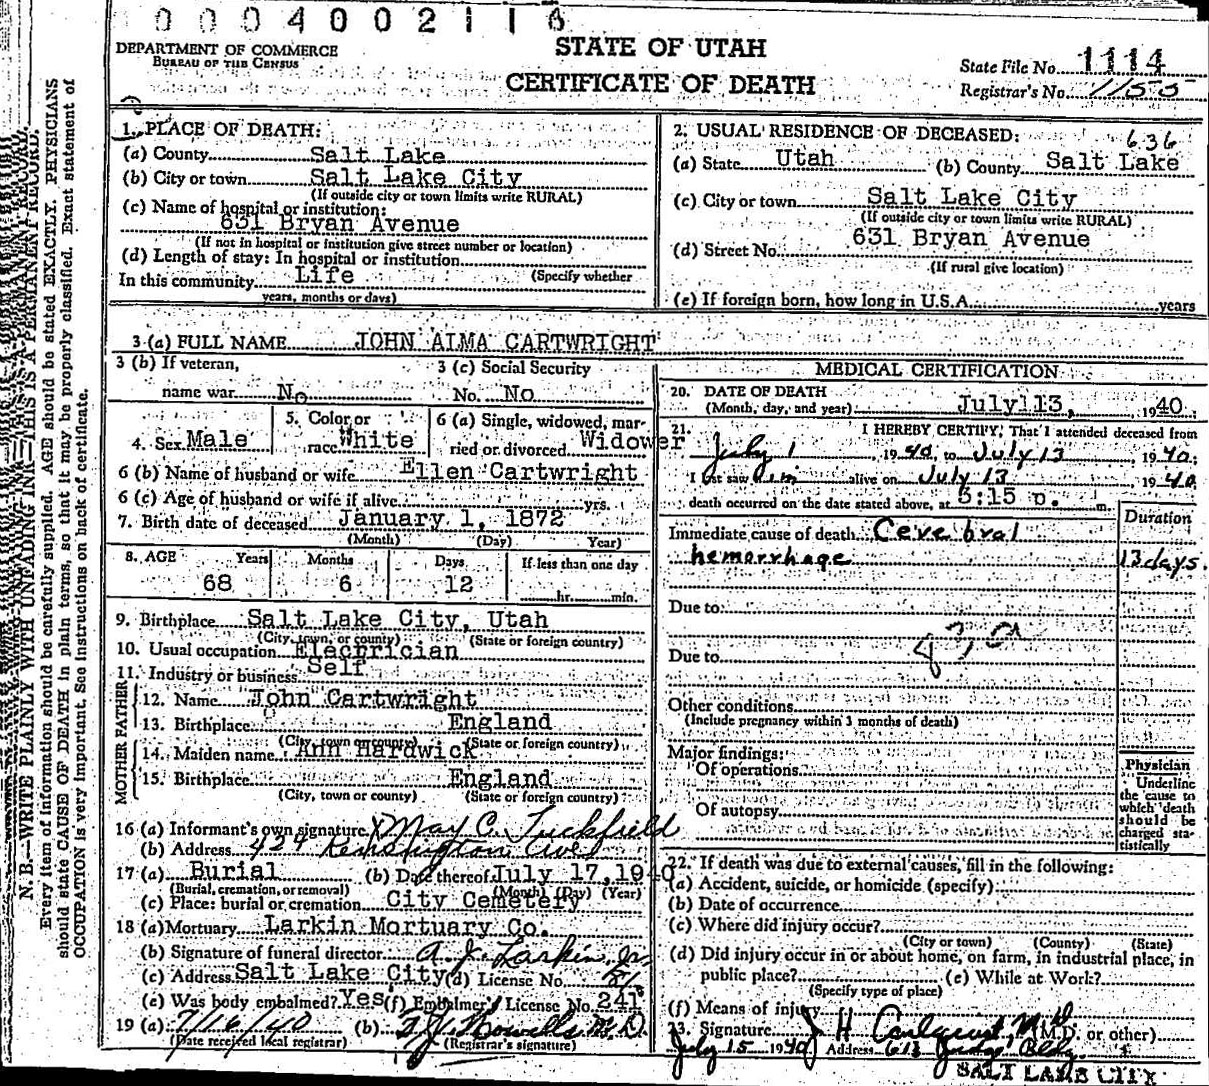 0 0 0 4 0 0 2 1 1 6
DEPARTMENT OF COMMERCE
BUREAU OF THE CENSUS
STATE OF UTAH
CERTIFICATE OF DEATH
State File No. 1114
Registrar's No. 1155
N. B.—WRITE PLAINLY WITH UNFADING INK—THIS IS A PERMANENT RECORD.
Every item of information should be carefully supplied. AGE should be stated EXACTLY. PHYSICIANS
should state CAUSE OF DEATH in plain terms, so that it may be properly classified. Exact statement of
OCCUPATION is very important. See instructions on back of certificate.
1. PLACE OF DEATH:
(a) County Salt Lake
(b) City or town Salt Lake City
(If outside city or town limits write RURAL)
(c) Name of hospital or institution:
631 Bryan Avenue
(If not in hospital or institution give street number or location)
(d) Length of stay: In hospital or institution
(Specify whether
In this community Life
years, months or days)
2. USUAL RESIDENCE OF DECEASED: 636
(a) State Utah (b) County Salt Lake
(c) City or town Salt Lake City
(If outside city or town limits write RURAL)
(d) Street No. 631 Bryan Avenue
(If rural give location)
(e) If foreign born, how long in U.S.A. years
3 (a) FULL NAME JOHN ALMA CARTWRIGHT
3 (b) If veteran, 3 (c) Social Security
name war No No. No
4. Sex Male 5. Color or race White 6 (a) Single, widowed, married or divorced Widower
6 (b) Name of husband or wife Ellen Cartwright
6 (c) Age of husband or wife if alive yrs.
7. Birth date of deceased January 1, 1872
(Month) (Day) Year)
8. AGE Years Months Days If less than one day
68 6 12 hr. min.
9. Birthplace Salt Lake City, Utah
(City, town, or county) (State or foreign country)
10. Usual occupation Electrician
11. Industry or business Self
FATHER
12. Name John Cartwright
13. Birthplace England
(City, town or county) (State or foreign country)
MOTHER
14. Maiden name Ann Hardwick
15. Birthplace England
(City, town or county) (State or foreign country)
16 (a) Informant's own signature X May C. Tuckfield
(b) Address 424 Kensington Ave
17 (a) Burial (b) Date thereof July 17, 1940
(Burial, cremation, or removal) (Month) (Day) (Year)
(c) Place: burial or cremation City Cemetery
18 (a) Mortuary Larkin Mortuary Co.
(b) Signature of funeral director A. J. Larkin, Jr.
(c) Address Salt Lake City (d) License No. 81
(e) Was body embalmed? Yes (f) Embalmer's License No. 241
19 (a) 7/16/40 (b) M. D.
(Date received local registrar) (Registrar's signature)
MEDICAL CERTIFICATION
20. DATE OF DEATH
(Month, day, and year) July 13, 1940
21. I HEREBY CERTIFY, That I attended deceased from
July 1, 1940, to July 13 1940;
I last saw him alive on July 13 1940
death occurred on the date stated above, at 5:15 p. m.
Duration
Immediate cause of death Cerebral
hemorrhage 13 days.
Due to
Due to
83, a
Other conditions
(Include pregnancy within 3 months of death)
Major findings:
Of operations
Of autopsy
Physician
Underline
the cause to
which death
should be
charged sta-
tistically
22. If death was due to external causes, fill in the following:
(a) Accident, suicide, or homicide (specify)
(b) Date of occurrence
(c) Where did injury occur?
(City or town) (County) (State)
(d) Did injury occur in or about home, on farm, in industrial place, in
public place? (e) While at Work?
(Specify type of place)
(f) Means of injury
23. Signature J H Carlquist, M D (M.D. or other)
July 15 1940 Address 613 Judge Bldg.
SALT LAKE CITY